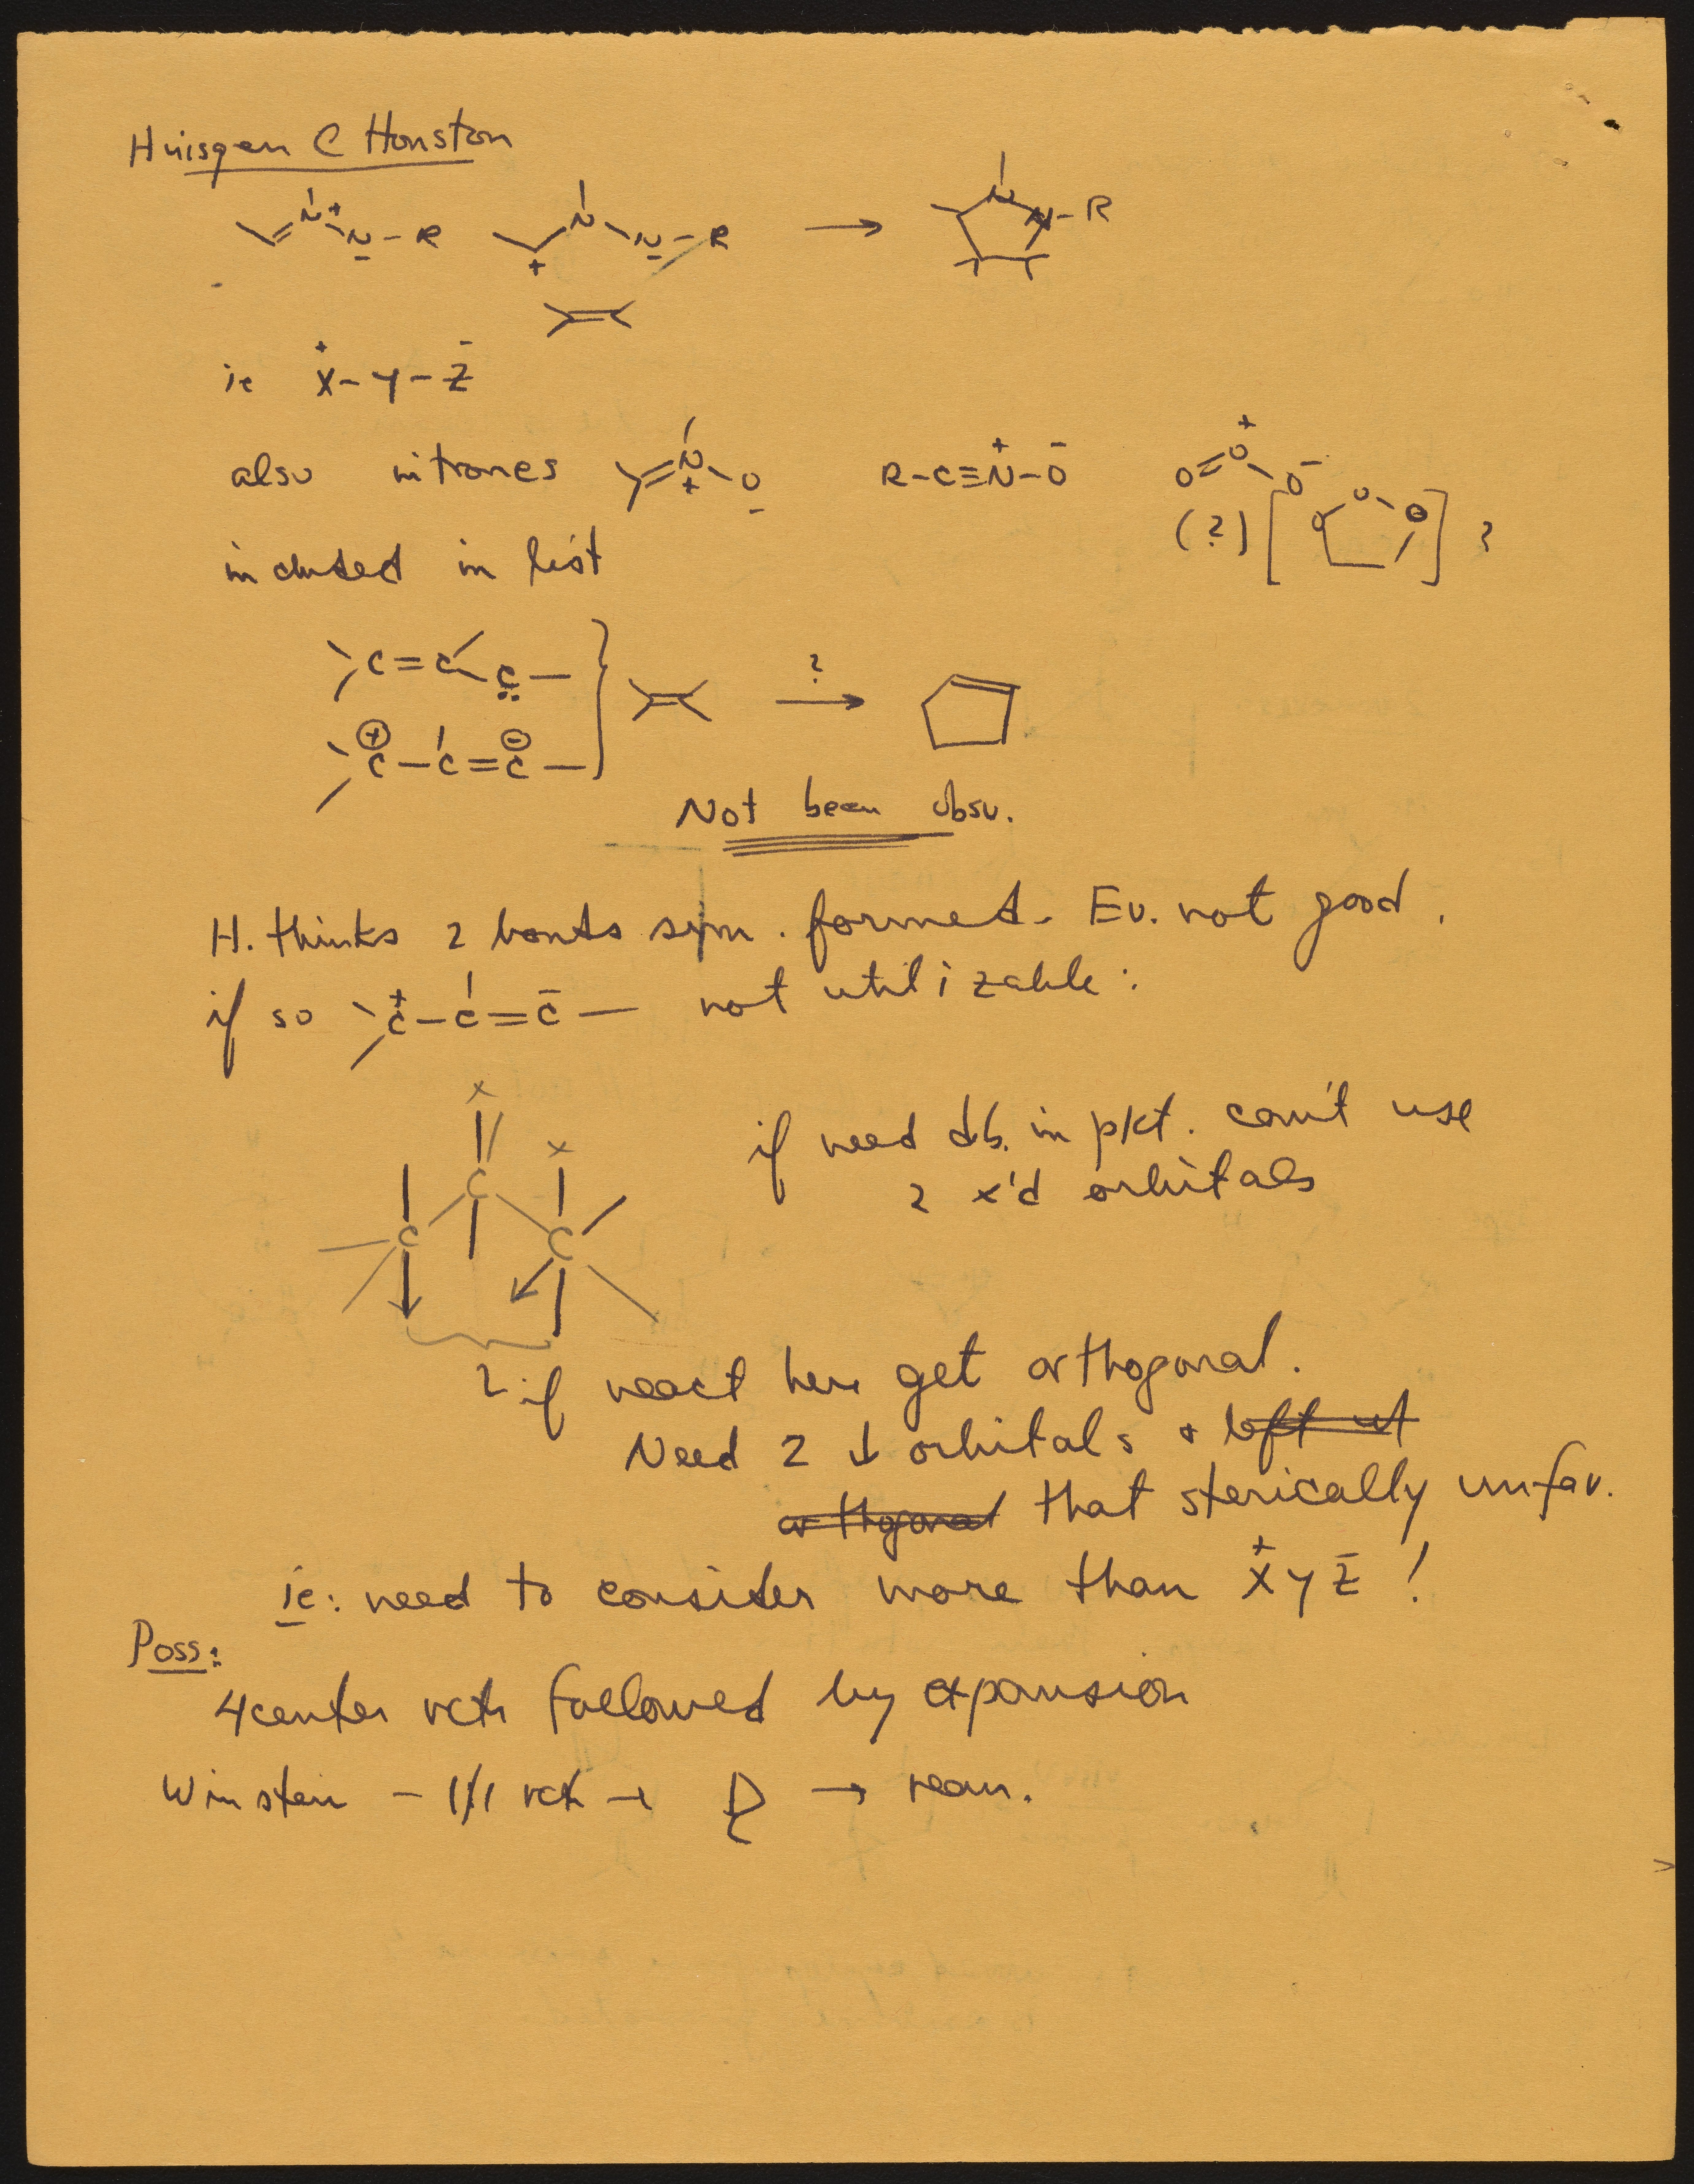 Huisgen C Houston
N+ N - R N N - R → N N - R
ie X+ - Y - Z-
also nitrones N+ O- R-C≡N+-O- O=O+ O-
included in list (?) [ O O O ] ?
C=C C: ? →
⊕C-C=C⊖
Not been obsv.
H. thinks 2 bonds sym. formed. Ev. not good.
if so C+-C=C- not utilizable:
x x
C C C
if need d.b. in pkt. can't use
2 x'd orbitals
2 if react here get orthogonal.
Need 2 ↓ orbitals + left ut
orthogonal that sterically unfav.
ie: need to consider more than X+ Y Z- !
Poss:
4center rctn followed by expansion
Winstein - 1/1 rctn → → rearr.